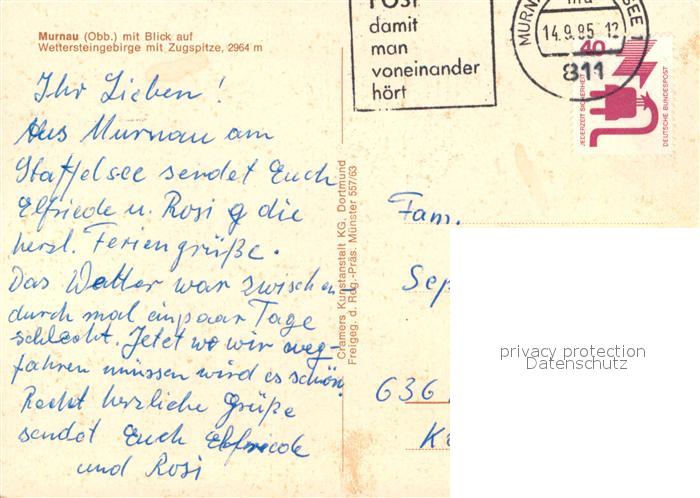 Murnau (Obb.) mit Blick auf
Wettersteingebirge mit Zugspitze, 2964 m
Ihr Lieben!
Aus Murnau am
Staffelsee sendet Euch
Elfriede u. Rosi die
herzl. Feriengrüße.
Das Wetter war zwischen-
durch mal ein paar Tage
schlecht. Jetzt wo wir weg-
fahren müssen wird es schön.
Recht herzliche Grüße
sendet Euch Elfriede
und Rosi
Cramers Kunstanstalt KG. Dortmund
Freigeg. d. Reg.-Präs. Münster 557/63
damit
man
voneinander
hört
MURNAU
SEE 1
14.9.85-12
811
40
JEDERZEIT SICHERHEIT
DEUTSCHE BUNDESPOST
Fam.
Sep
636
privacy protection
Datenschutz